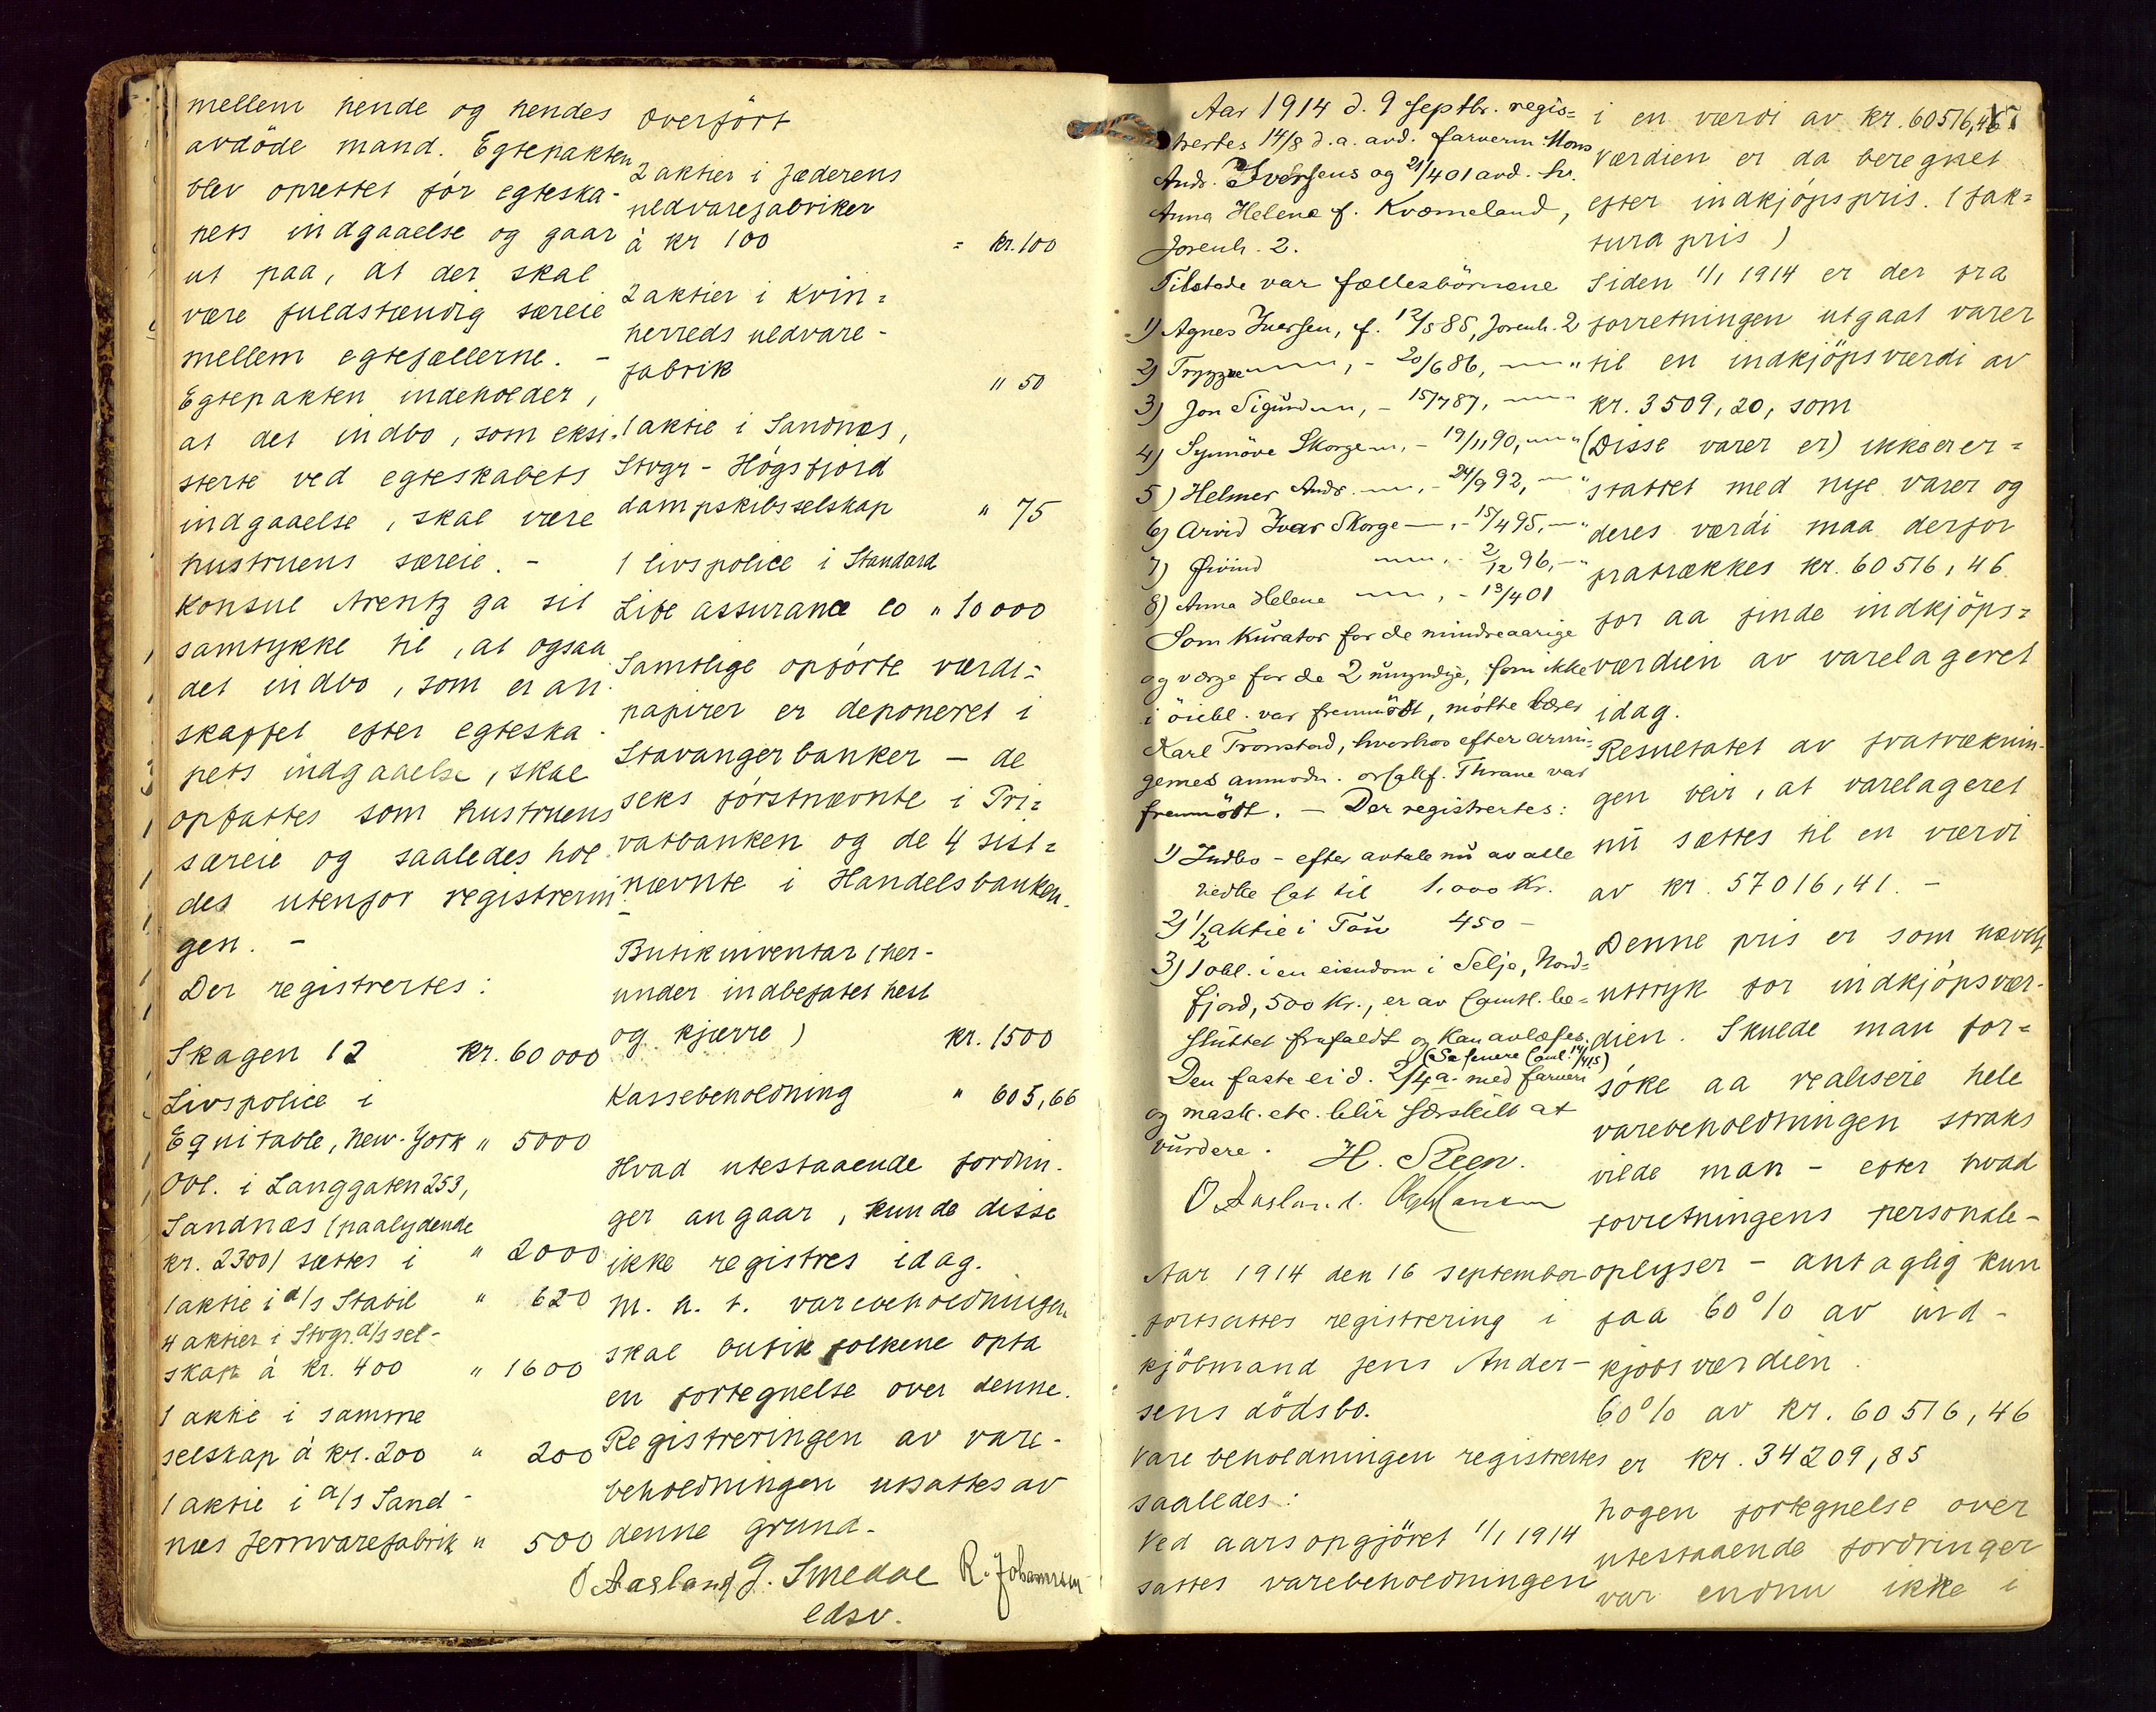 mellem hende og hendes
avdöde mand. Egtepakten
blev oprettet för egteska-
pets indgaaelse og gaar
ut paa, at der skal
være fuldstændig særeie
mellem egtefællerne. -
Egtepakten indeholder,
at det indbo, som eksi-
sterte ved egteskabets
indgaaelse, skal være
hustruens særeie. -
Konsul Arentz ga sit
samtykke til, at ogsaa
det indbo, som er an-
skaffet efter egteska-
pets indgaaelse, skal
opfattes som hustruens
særeie og saaledes hol-
des utenfor registrerin-
gen. -
Der registrertes:
Skagen 12 kr. 60 000
Livspolice i
Equitable, New-York " 5000
Obl. i Langgaten 253,
Sandnæs (paalydende
kr. 2300) sættes i " 2000
1 aktie i a/s Stabil " 620
4 aktier i Stvgr. d/s sel-
skap à kr. 400 " 1600
1 aktie i samme
selskap à kr. 200 " 200
1 aktie i a/s Sand-
næs Jernvarefabrik " 500
Overfört
2 aktier i Jæderens
uldvarefabriker
à kr 100 = kr. 100
2 aktier i Kvin=
herreds uldvare-
fabrik " 50
1 aktie i Sandnæs,
Stvgr - Högsfjord
dampskibsselskap " 75
1 livspolice i Standard
Life assurance co " 10 000
Samtlige opförte værdi=
papirer er deponeret i
Stavanger banker - de
seks förstnævnte i Pri=
vatbanken og de 4 sist=
nævnte i Handelsbanken.
Butikinventar (her-
under indbefatet hest
og kjærre) kr. 1500
Kassebeholdning " 605,66
Hvad utestaaende fordrin-
ger angaar, kunde disse
ikke registres idag.
M. h. t. varebeholdningen
skal butikfolkene opta
en fortegnelse over denne.
Registreringen av vare-
beholdningen utsattes av
denne grund.
O Aasland J. Smedal R. Johannesen
edsv.
Aar 1914 d. 9 septbr. regis=
trertes 14/8 d.a. avd. farverm. Mons
Andr. Iversens og 21/4 01 avd. hr.
Anna Helene f. Kværneland,
Jorenh. 2.
Tilstede var fællesbörnene
1) Agnes Iversen, f. 12/5 85, Jorenh. 2
2) Trygve —"—, - 20/6 86, —"— "
3) Jon Sigurd —"—, - 15/7 87, —"—
4) Synnöve Skorge —"—, - 19/11 90, —"— "
5) Helmer Andr. —"—, - 24/9 92, —"— "
6) Arvid Ivar Skorge —, - 15/4 95, — "
7) Øivind —"—, - 2/12 96, — "
8) Anna Helene —"—, - 13/4 01
Som kurator for de mindreaarige
og værge for de 2 umyndige, som ikke
i öiebl. var fremmödt, mötte
Karl Tronstad, hvorhos efter arvin-
gernes anmodn. orsakf. Thrane var
fremmödt. - Der registrertes:
1) Indbo - efter avtale nu av alle
vedtk sat til 1.000 Kr.
2) 1/2 aktie i Tou 450 -
3) 1 obl. i en eiendom i Selje, Nord=
fjord, 500 Kr., er av samtl. be=
sluttet frafaldt og kan avlæses.
(Se senere saml. 14/1 1915)
Den faste eid. 2/4 a. med farveri
og mask. etc. blir særskilt at
vurdere.
H. Steen.
O Aasland.
Aar 1914 den 16 september
fortsattes registrering i
kjöbmand Jens Ander-
sens dödsbo.
Varebeholdningen registrertes
saaledes:
Ved aarsopgjöret 1/1 1914
sattes varebeholdningen
i en værdi av kr. 60516,46
Værdien er da beregnet
efter indkjöpspris. (fak=
tura pris)
Siden 1/1 1914 er der fra
forretningen utgaat varer
til en indkjöpsværdi av
kr. 3509,20, som
(Disse varer er) ikke er er=
stattet med nye varer og
deres værdi maa derfor
fratrækkes kr. 60516,46
for aa finde indkjöps=
værdien av varelageret
idag.
Resultatet av fratræknin-
gen blir, at varelageret
nu sættes til en værdi
av kr. 57016,41. -
Denne pris er som nævnt
uttryk for indkjöpsvær-
dien. Skulde man for=
söke aa realisere hele
varebeholdningen straks
vilde man - efter hvad
forretningens personale-
oplyser - antaglig kun
faa 60% av ind-
kjöbsværdien.
60% av kr. 60516,46
er kr. 34209,85
Nogen fortegnelse over
utestaaende fordringer
var endnu ikke i